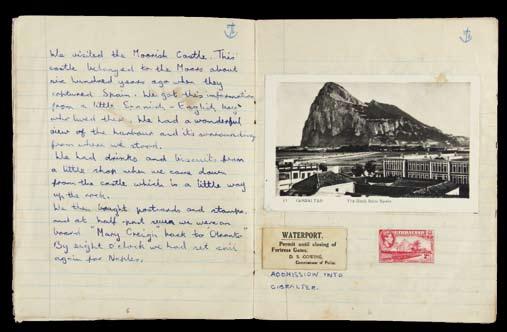 We visited the Moorish Castle. This
castle belonged to the Moors about
six hundred years ago when they
captured Spain. We got this information
from a little Spanish-English boy
who lived there. We had a wonderful
view of the harbour and its surroundings
from where we stood.
We had drinks and biscuits from
a little shop when we came down
from the castle which is a little way
up the rock.
We the bought postcards and stamps.
and at half past seven we were on
board "Mary Creigh" back to
By eight o'clock we had set sail
again for Naples.
GIBRALTAR
The Rock from Spain
WATERPORT.
Permit until closing of
Fortress Gates.
D. S. GOWING,
Commissioner of Police.
GIBRALTAR
ADDMISSION INTO
GIBRALTER.